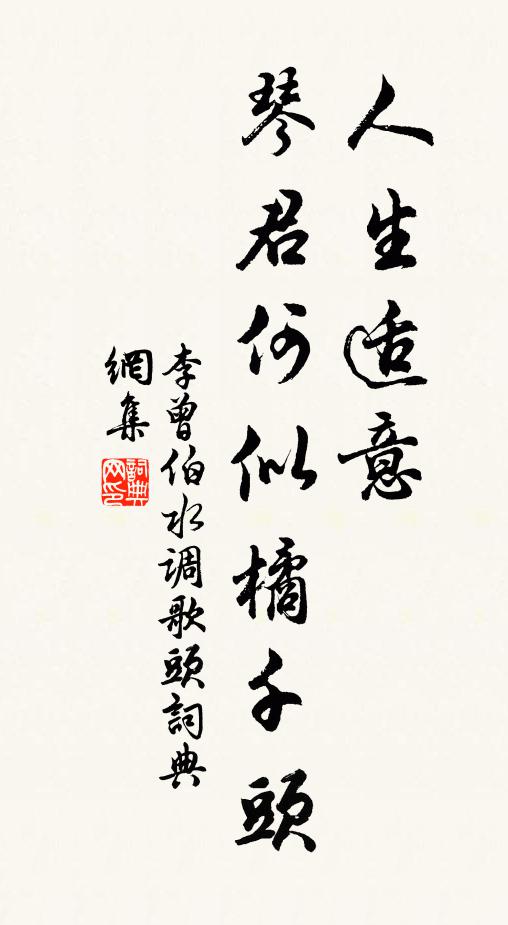 人生适意
琴君何似橘千頭
李曾伯水调歌頭詞典
網集
詞典网印